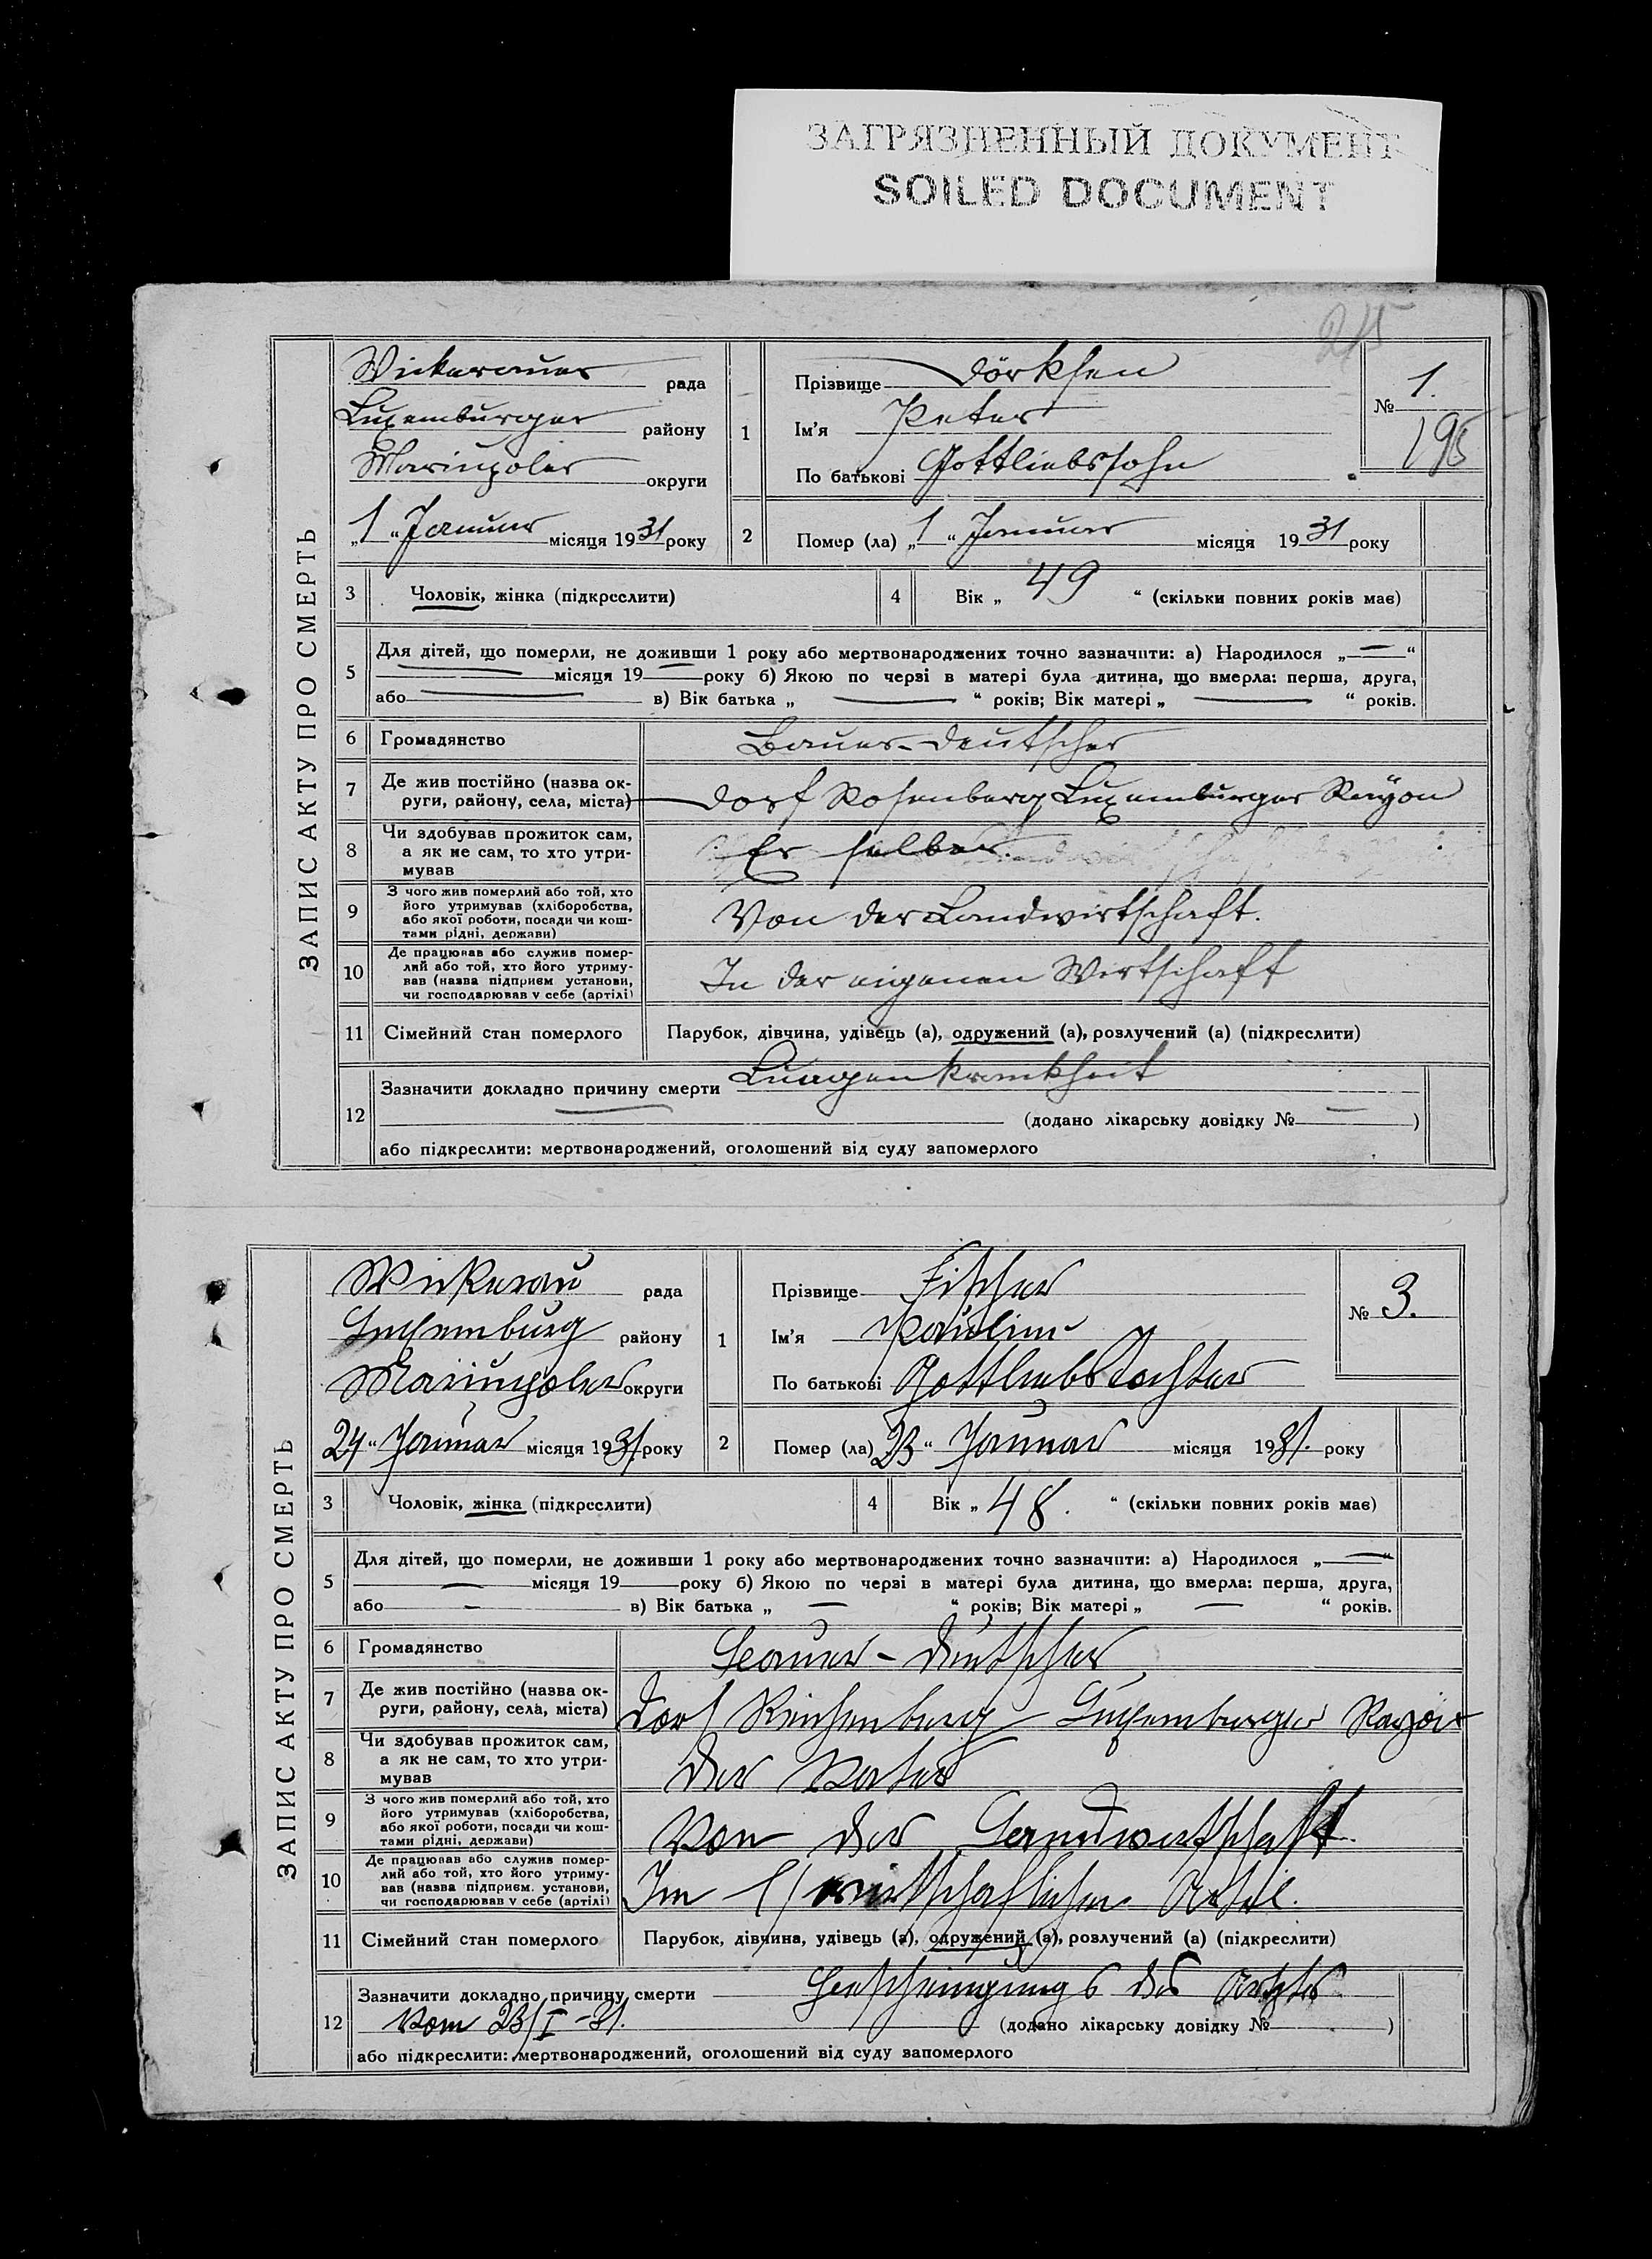 ЗАГРЯЗНЕННЫЙ ДОКУМЕНТ
SOILED DOCUMENT
215
ЗАПИС АКТУ ПРО СМЕРТЬ
Wickerauer рада
Luxemburger району
Mariupoler округи
„1“ Januar місяця 1931 року
1
Прізвище Dörksen
Ім'я Peter
По батькові Gottliebssohn
№ 1.
195
2 Помер (ла) „1“ Januar місяця 1931 року
3 Чоловік, жінка (підкреслити)
4 Вік „49“ (скільки повних років має)
5 Для дітей, що померли, не доживши 1 року або мертвонароджених точно зазначити: а) Народилося „—“
— місяця 19— року б) Якою по черзі в матері була дитина, що вмерла: перша, друга,
або — в) Вік батька „ — “ років; Вік матері „ — “ років.
6 Громадянство Bauer-Deutscher
7 Де жив постійно (назва ок-
руги, району, села, міста) Dorf Rosenberg Luxemburger Rayon
8 Чи здобував прожиток сам,
а як не сам, то хто утри-
мував Er selber.
9 З чого жив померлий або той, хто
його утримував (хліборобства,
або якої роботи, посади чи кош-
тами рідні, держави) Von der Landwirtschaft.
10 Де працював або служив помер-
лий або той, хто його утриму-
вав (назва підприєм установи,
чи господарював у себе (артілі) In der eigenen Wirtschaft
11 Сімейний стан померлого Парубок, дівчина, удівець (а), одружений (а), розлучений (а) (підкреслити)
12 Зазначити докладно причину смерти Lungenkrankheit
— (додано лікарську довідку № — )
або підкреслити: мертвонароджений, оголошений від суду запомерлого
ЗАПИС АКТУ ПРО СМЕРТЬ
Wickerau рада
Luxemburg району
Mariupoler округи
24 “ Januar місяця 1931. року
1
Прізвище Fischer
Ім'я Pauline
По батькові Gottliebstochter
№ 3.
2 Помер (ла) 23 “ Januar місяця 1931. року
3 Чоловік, жінка (підкреслити)
4 Вік „ 48. “ (скільки повних років має)
5 Для дітей, що померли, не доживши 1 року або мертвонароджених точно зазначити: а) Народилося „—“
— місяця 19— року б) Якою по черзі в матері була дитина, що вмерла: перша, друга,
або — в) Вік батька „ — “ років; Вік матері „ — “ років.
6 Громадянство Bauer - Deutscher
7 Де жив постійно (назва ок-
руги, району, села, міста) Dorf Reichenberg Luxemburger Rayon
8 Чи здобував прожиток сам,
а як не сам, то хто утри-
мував Der Vater
9 З чого жив померлий або той, хто
його утримував (хліборобства,
або якої роботи, посади чи кош-
тами рідні, держави) Von der Landwirtschaft.
10 Де працював або служив помер-
лий або той, хто його утриму-
вав (назва підприєм. установи,
чи господарював у себе (артілі) Im wirtschaftlichen Artel.
11 Сімейний стан померлого Парубок, дівчина, удівець (а), одружений (а), розлучений (а) (підкреслити)
12 Зазначити докладно причину смерти des Arztes
vom 23/I-31. (додано лікарську довідку № )
або підкреслити: мертвонароджений, оголошений від суду запомерлого